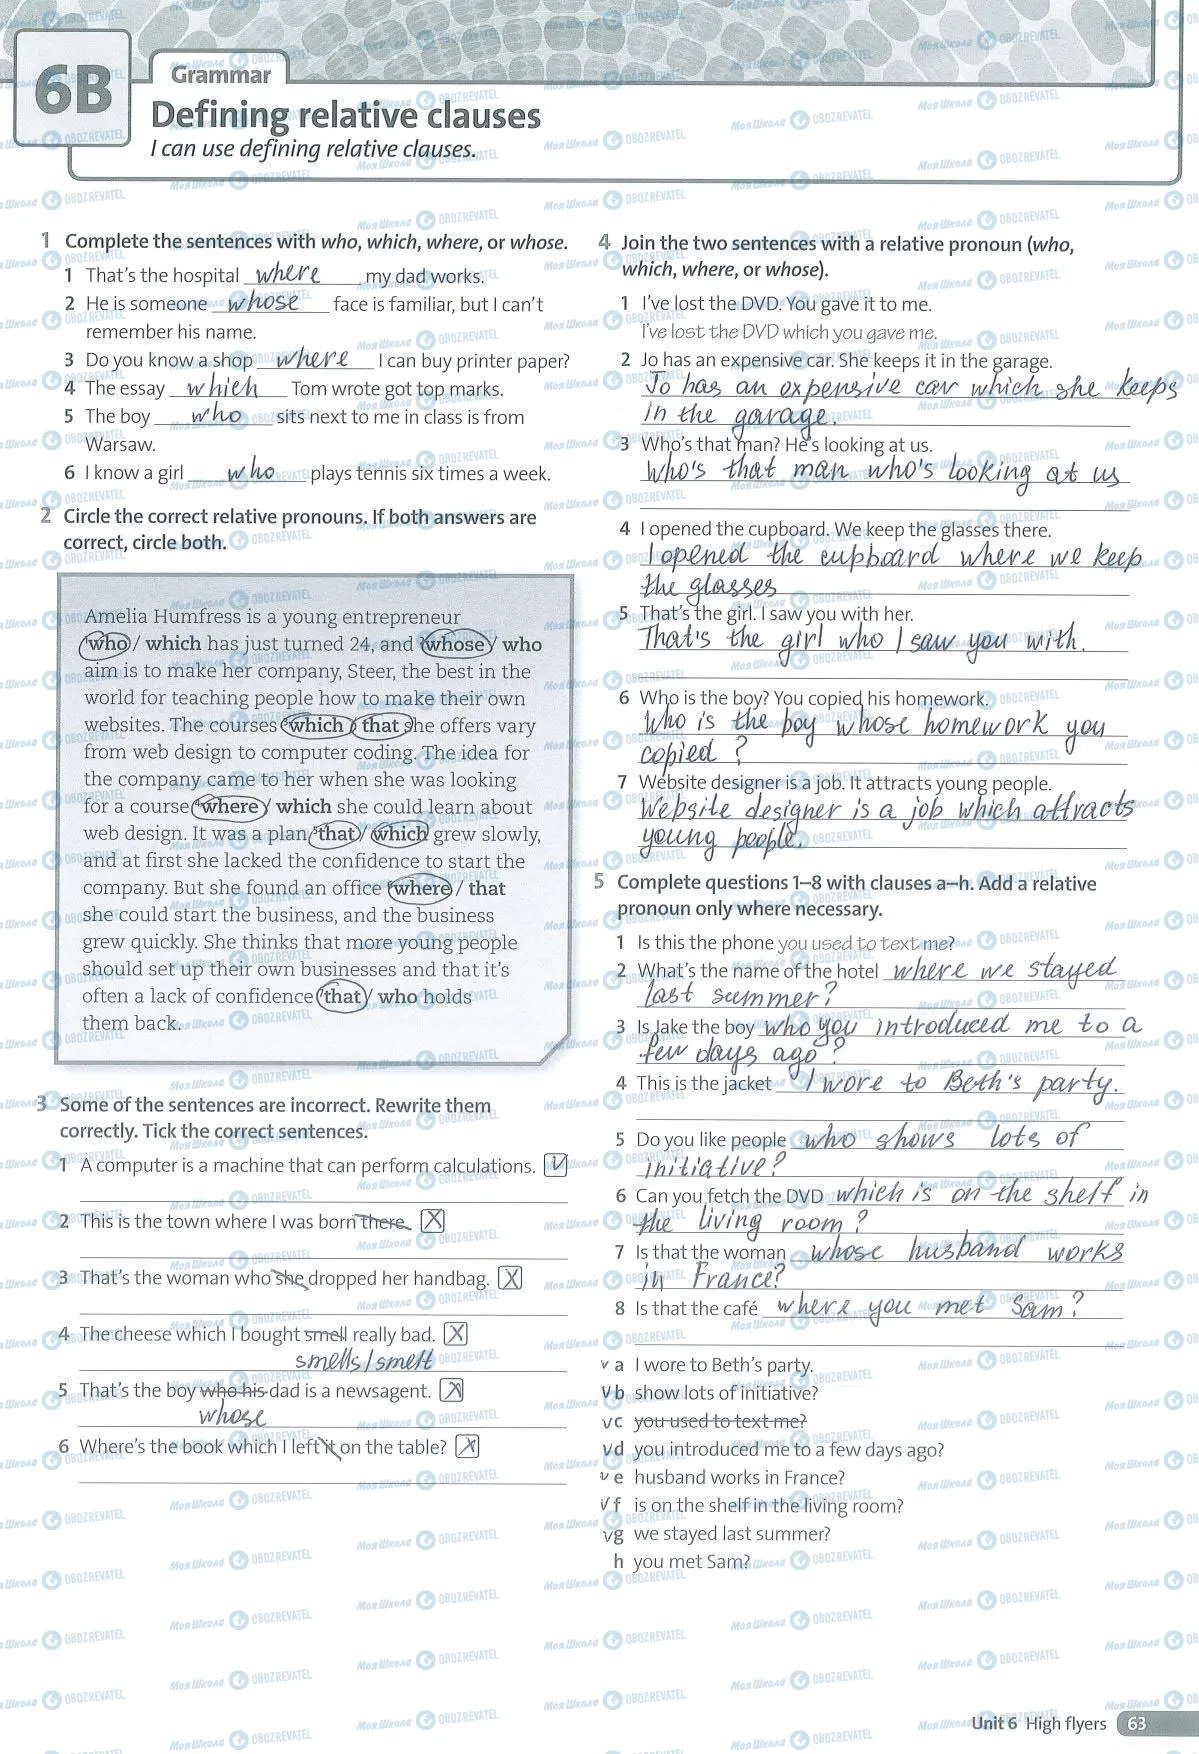 6B
Grammar
Defining relative clauses
I can use defining relative clauses.
1 Complete the sentences with who, which, where, or whose.
1 That's the hospital where my dad works.
2 He is someone whose face is familiar, but I can't
remember his name.
3 Do you know a shop where I can buy printer paper?
4 The essay which Tom wrote got top marks.
5 The boy who sits next to me in class is from
Warsaw.
6 I know a girl who plays tennis six times a week.
2 Circle the correct relative pronouns. If both answers are
correct, circle both.
Amelia Humfress is a young entrepreneur
¹who / which has just turned 24, and ²whose / who
aim is to make her company, Steer, the best in the
world for teaching people how to make their own
websites. The courses ³which / that she offers vary
from web design to computer coding. The idea for
the company came to her when she was looking
for a course ⁴where / which she could learn about
web design. It was a plan ⁵that / which grew slowly,
and at first she lacked the confidence to start the
company. But she found an office ⁶where / that
she could start the business, and the business
grew quickly. She thinks that more young people
should set up their own businesses and that it's
often a lack of confidence ⁷that / who holds
them back.
3 Some of the sentences are incorrect. Rewrite them
correctly. Tick the correct sentences.
1 A computer is a machine that can perform calculations. V
2 This is the town where I was born there. X
3 That's the woman who she dropped her handbag. X
4 The cheese which I bought smell really bad. X
smells/smelt
5 That's the boy who his dad is a newsagent. X
whose
6 Where's the book which I left it on the table? X
4 Join the two sentences with a relative pronoun (who,
which, where, or whose).
1 I've lost the DVD. You gave it to me.
I've lost the DVD which you gave me.
2 Jo has an expensive car. She keeps it in the garage.
Jo has an expensive car which she keeps
in the garage.
3 Who's that man? He's looking at us.
Who's that man who's looking at us
4 I opened the cupboard. We keep the glasses there.
I opened the cupboard where we keep
the glasses
5 That's the girl. I saw you with her.
That's the girl who I saw you with.
6 Who is the boy? You copied his homework.
Who is the boy whose homework you
copied ?
7 Website designer is a job. It attracts young people.
Website designer is a job which attracts
young people.
5 Complete questions 1–8 with clauses a–h. Add a relative
pronoun only where necessary.
1 Is this the phone you used to text me?
2 What's the name of the hotel where we stayed
last summer?
3 Is Jake the boy who you introduced me to a
few days ago?
4 This is the jacket I wore to Beth's party.
5 Do you like people who shows lots of
initiative?
6 Can you fetch the DVD which is on the shelf in
the living room?
7 Is that the woman whose husband works
in France?
8 Is that the café where you met Sam?
v a I wore to Beth's party.
v b show lots of initiative?
v c you used to text me?
v d you introduced me to a few days ago?
v e husband works in France?
v f is on the shelf in the living room?
v g we stayed last summer?
h you met Sam?
Unit 6 High flyers 63
Моя Школа OBOZREVATEL